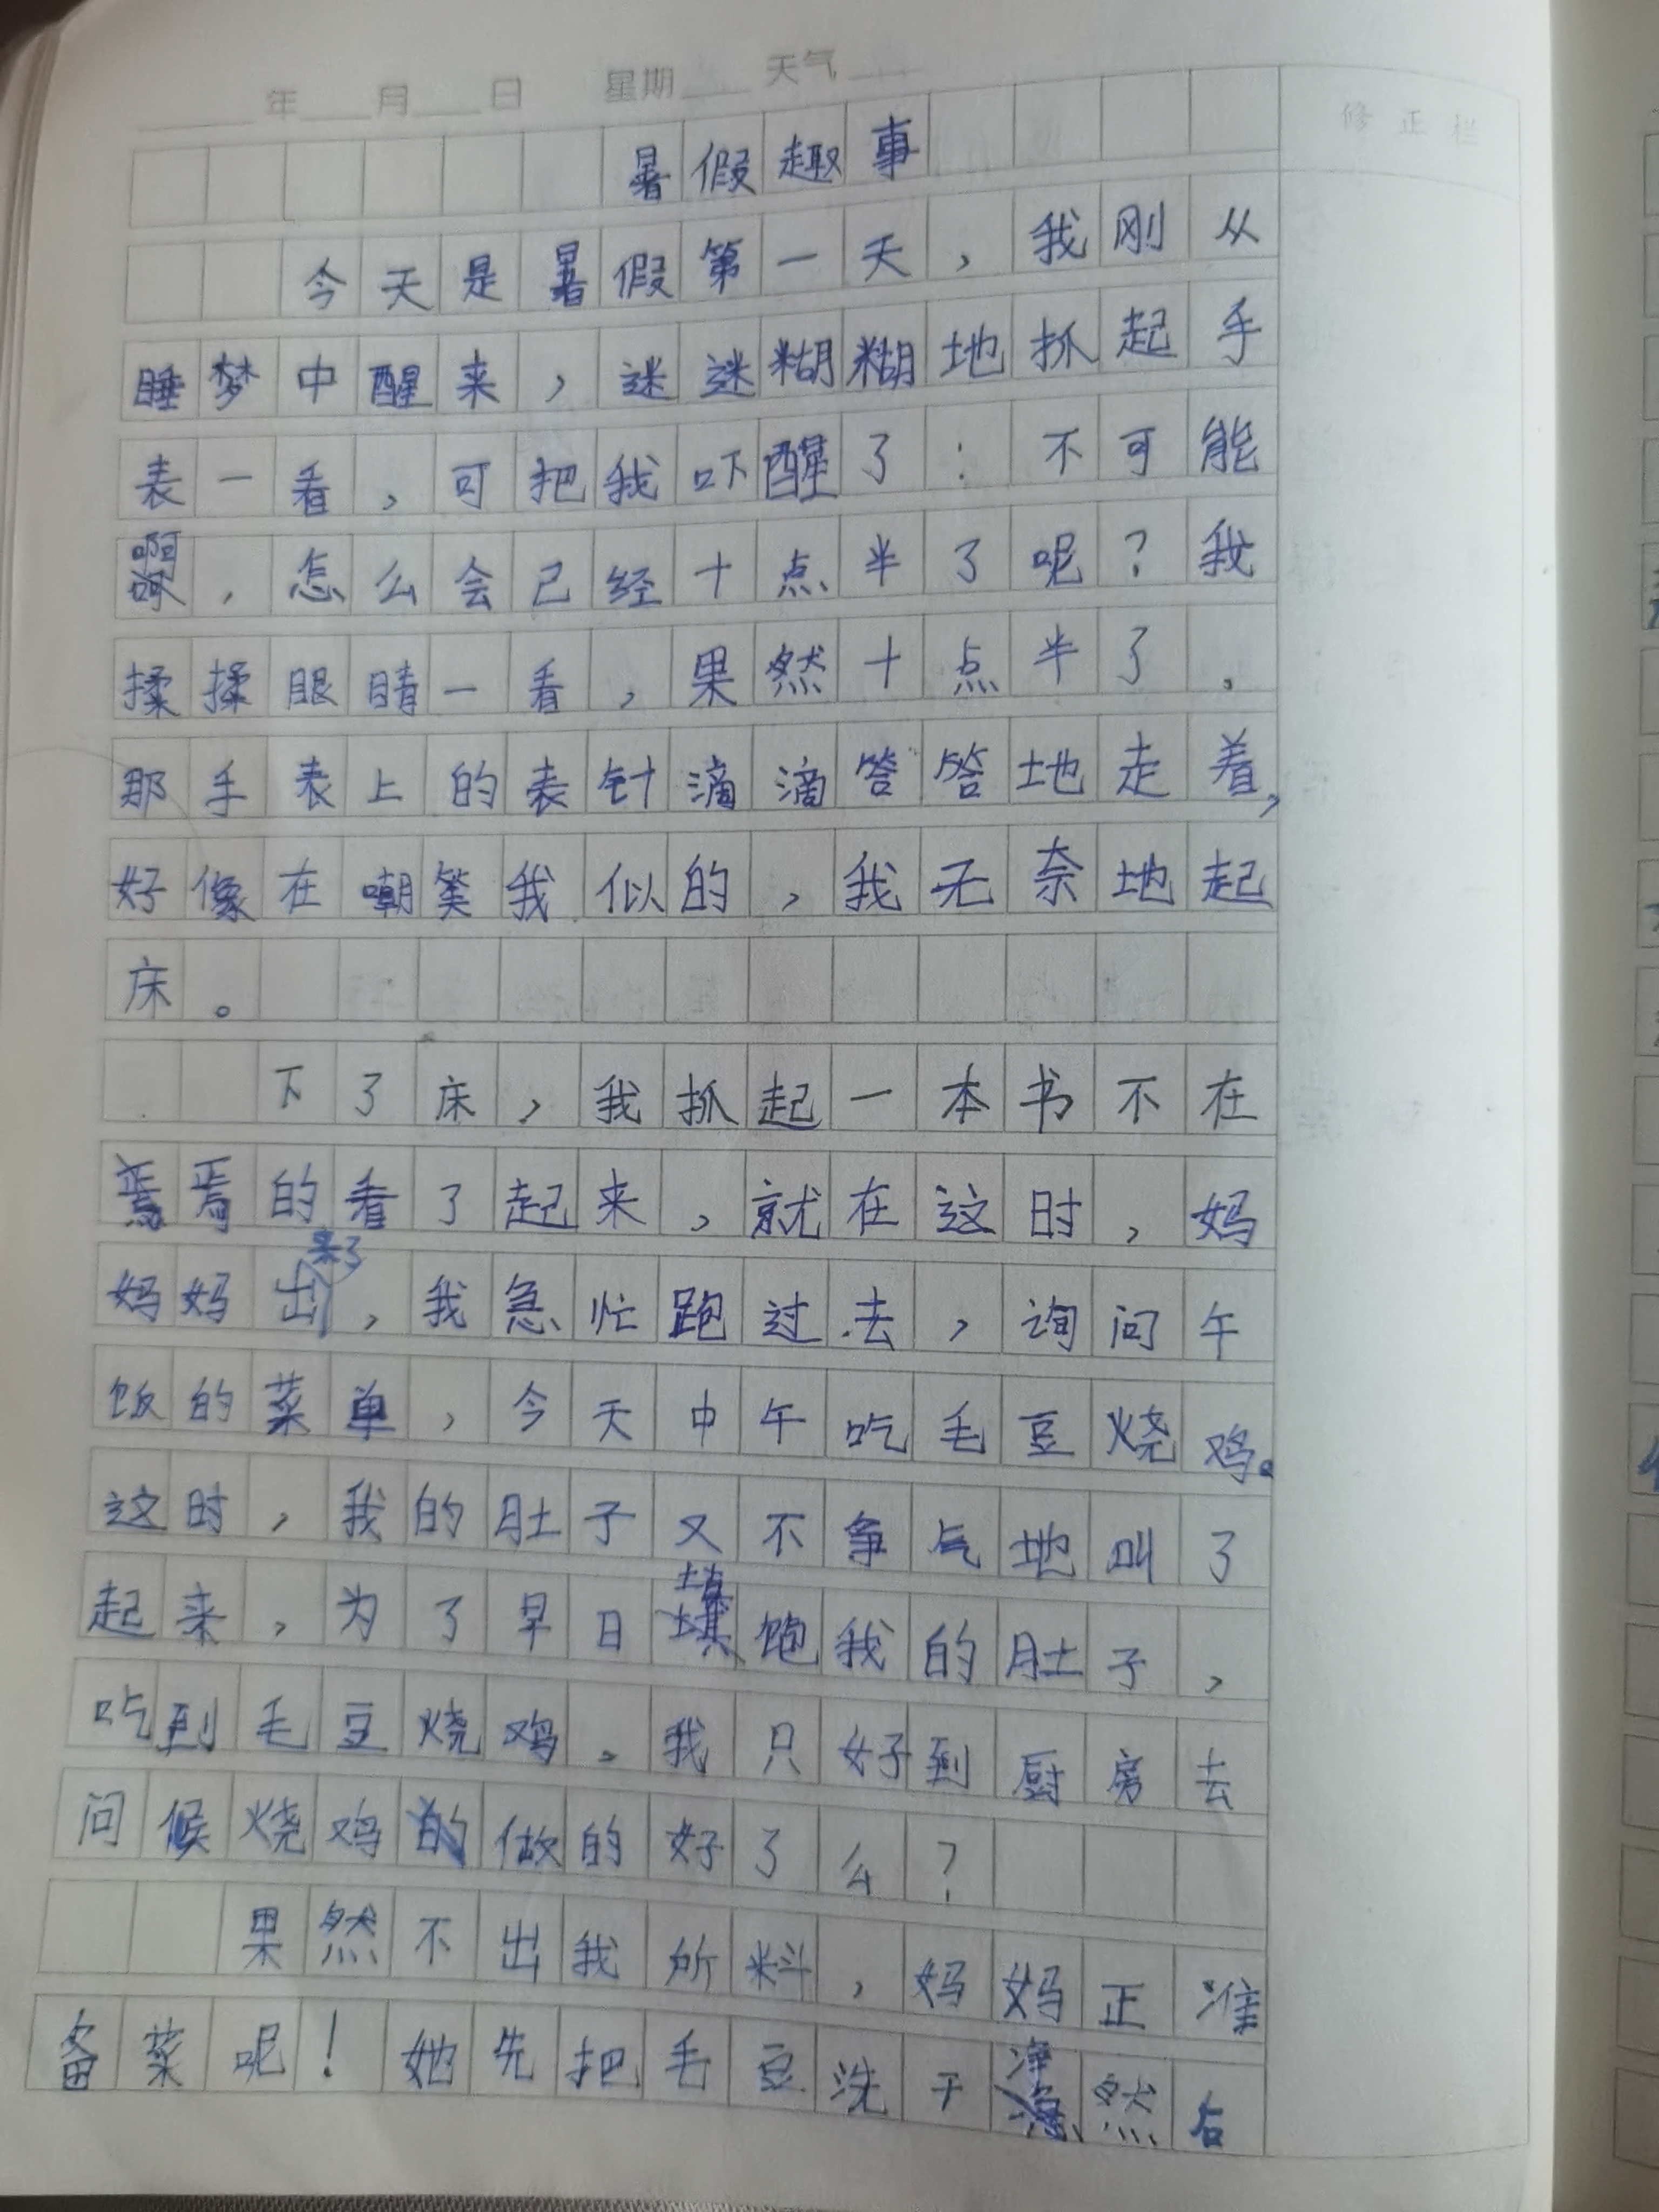 年 月 日 星期 天气
修正栏
暑假趣事
今天是暑假第一天，我刚从
睡梦中醒来，迷迷糊糊地抓起手
表一看，可把我吓醒了：不可能
啊，怎么会已经十点半了呢？我
揉揉眼睛一看，果然十点半了。
那手表上的表针滴滴答答地走着，
好像在嘲笑我似的，我无奈地起
床。
下了床，我抓起一本书不在
焉焉的看了起来，就在这时，妈
妈妈出来了，我急忙跑过去，询问午
饭的菜单，今天中午吃毛豆烧鸡。
这时，我的肚子又不争气地叫了
起来，为了早日填饱我的肚子，
吃到毛豆烧鸡。我只好到厨房去
问候烧鸡做的好了么？
果然不出我所料，妈妈正准
备菜呢！她先把毛豆洗干净然后